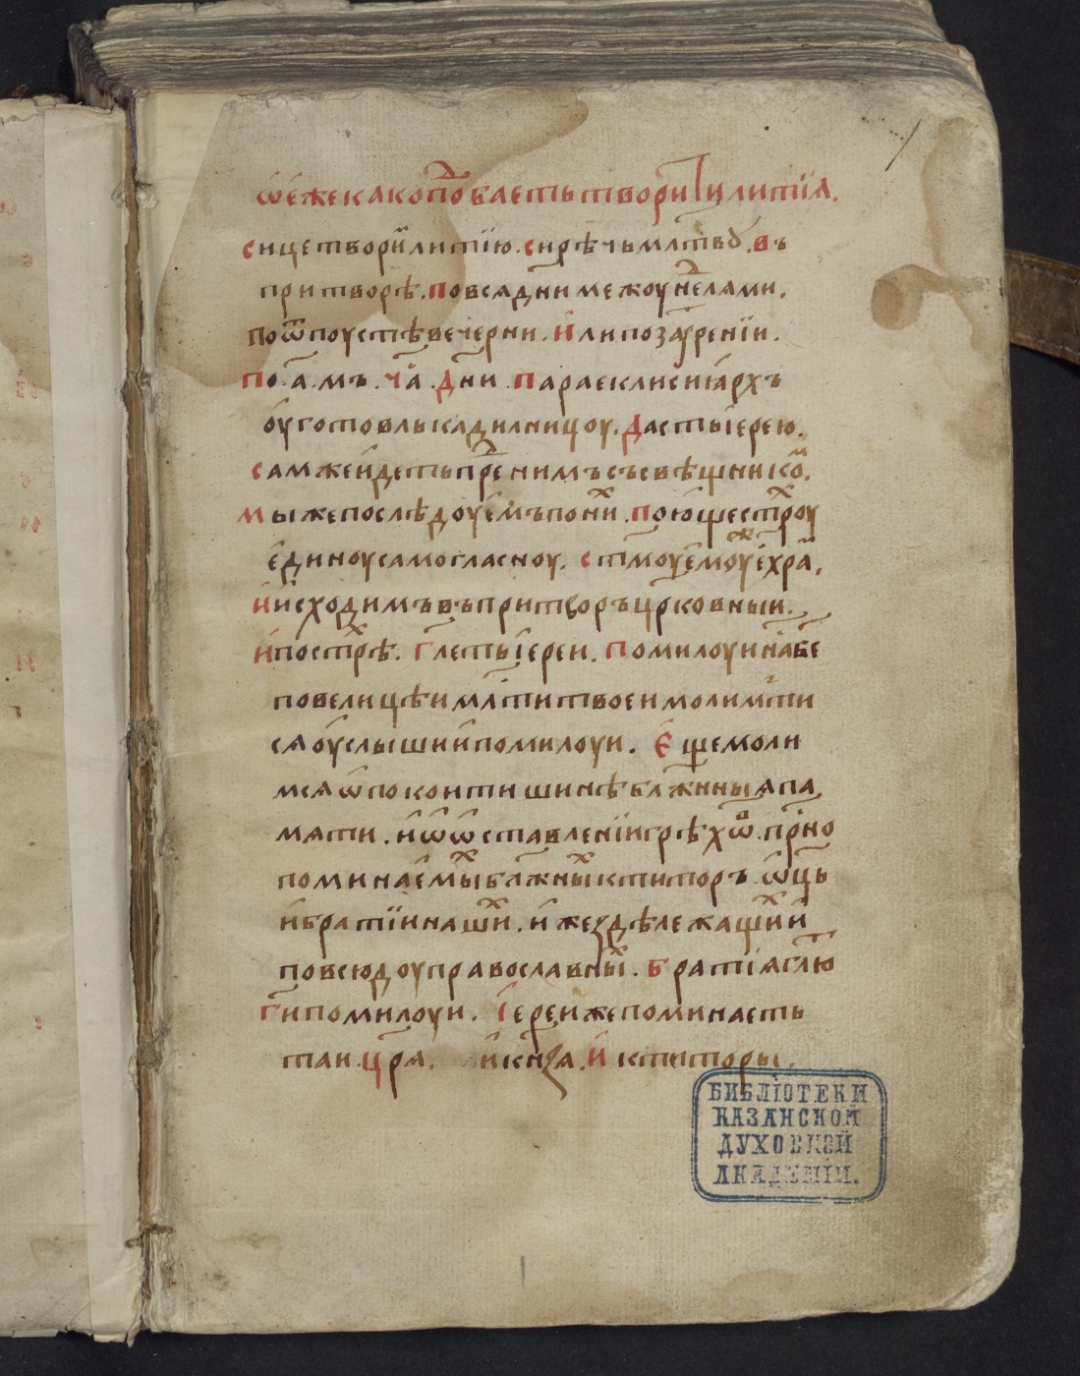 ѿ е́же како пⷣобаеть твори́ти лити́ѧ.
сице твори́м лити́ю. сирѣчь млт҃вꙋ. въ
притворѣ. по всѧ дн҃и межоу нⷣелами.
по ѿпоустѣ вечерни. и́ли по заоутренїи.
по .а҃. мъ. ча҃. дн҃и. параеклисїархъ
оу́готовль кадилницоу. дасть їерею.
сам же и́деть прⷣе нимъ съ свѣщникоⷨ.
мы же послѣдоуемъ по ниⷯ. пою́ще стⷯроу
е́диноу самогласноу. ст҃моу емоуже е́ храⷨ.
и́ исходимъ въ притворъ црк҃овныи.
и́ по стⷯрѣ. гл҃еть їереи. помилоуи на́ бе҃
по велицѣи млⷭти твоеи молим ти
сѧ оу́слыши и́ помилоуи. є҆ще моли
мсѧ ѡ покои тишинѣ блаж҃нныѧ па
мѧти. и́ ѡ ѡставленїи грѣхѡⷡ. прⷭно
поминае́мыⷯ блаж҃ныⷯ ктиторъ. ѿц҃ь
и́ братїи нашиⷯ. и́же здѣ лежащиⷯ и́
повсюдоу православныⷯ. братїѧ гл҃ю
гⷭи помилоуи. Їереи же поминаеть
таи. цр҃ѧ. и́ кн҃зѧ. и́ ктиторы.
БИБЛІОТЕКИ
КАЗАНСКОЙ
ДУХОВНОЙ
АКАДЕМІИ.